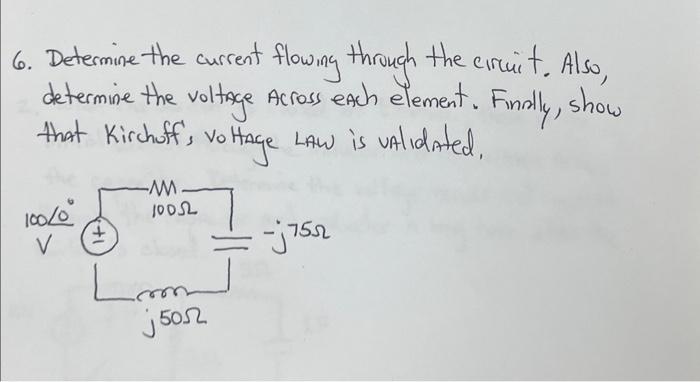 6. Determine the current flowing through the circuit. Also,
determine the voltage Across each element. Finally, show
that Kirchoff's Voltage LAW is vAlidAted.
100Ω
100∠0° V
-j75Ω
j50Ω